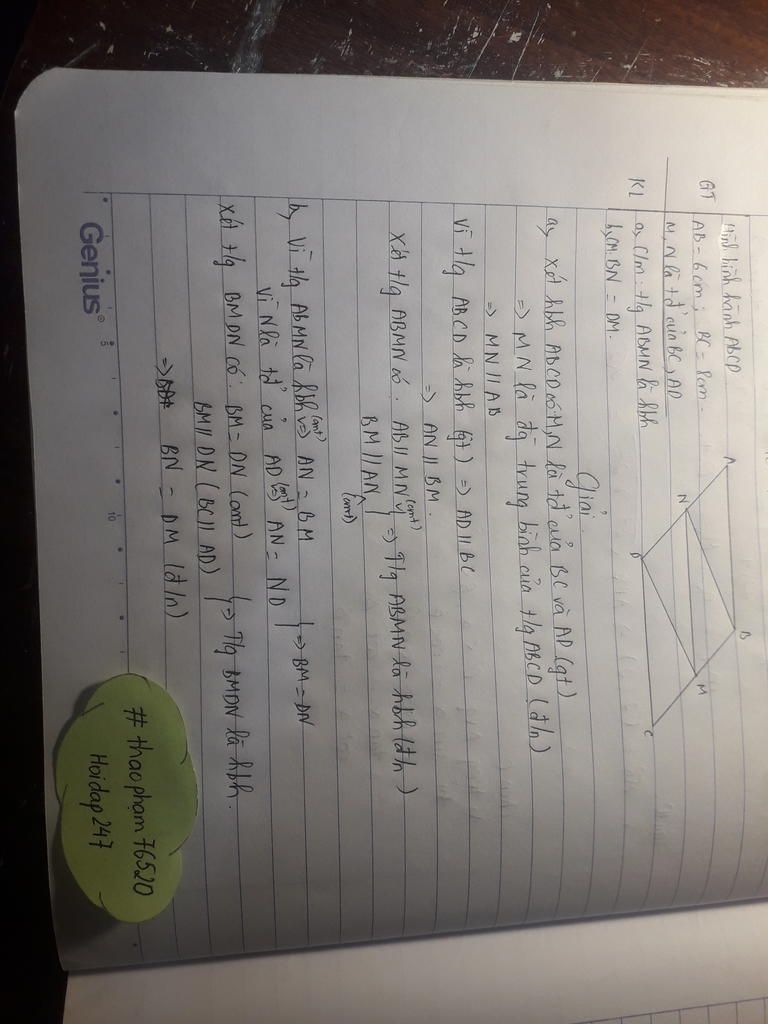 GT
Hình bình hành ABCD
AB = 6cm; BC = 8cm.
M, N là tđ' của BC, AD
KL
a, C/m: t/g ABMN là hbh
b, CM: BN = DM.
A
B
N
M
D
C
Giải
a, xét hbh ABCD có M, N là tđ' của BC và AD (gt)
=> MN là đg trung bình của t/g ABCD (đ/n)
=> MN // AB
Vì t/g ABCD là hbh (gt) => AD // BC
=> AN // BM.
Xét t/g ABMN có: AB // MN (cmt)
BM // AN (cmt)
} => T/g ABMN là hbh (đ/n)
b, Vì t/g ABMN là hbh (cmt) => AN = BM
Vì N là tđ' của AD (cmt) => AN = ND
} => BM = DN
Xét t/g BMDN có: BM = DN (cmt)
BM // DN (BC // AD)
} => T/g BMDN là hbh.
=> BN = DM (đ/n)
Genius®
5
10
# thaophạm76520
Hoidap247